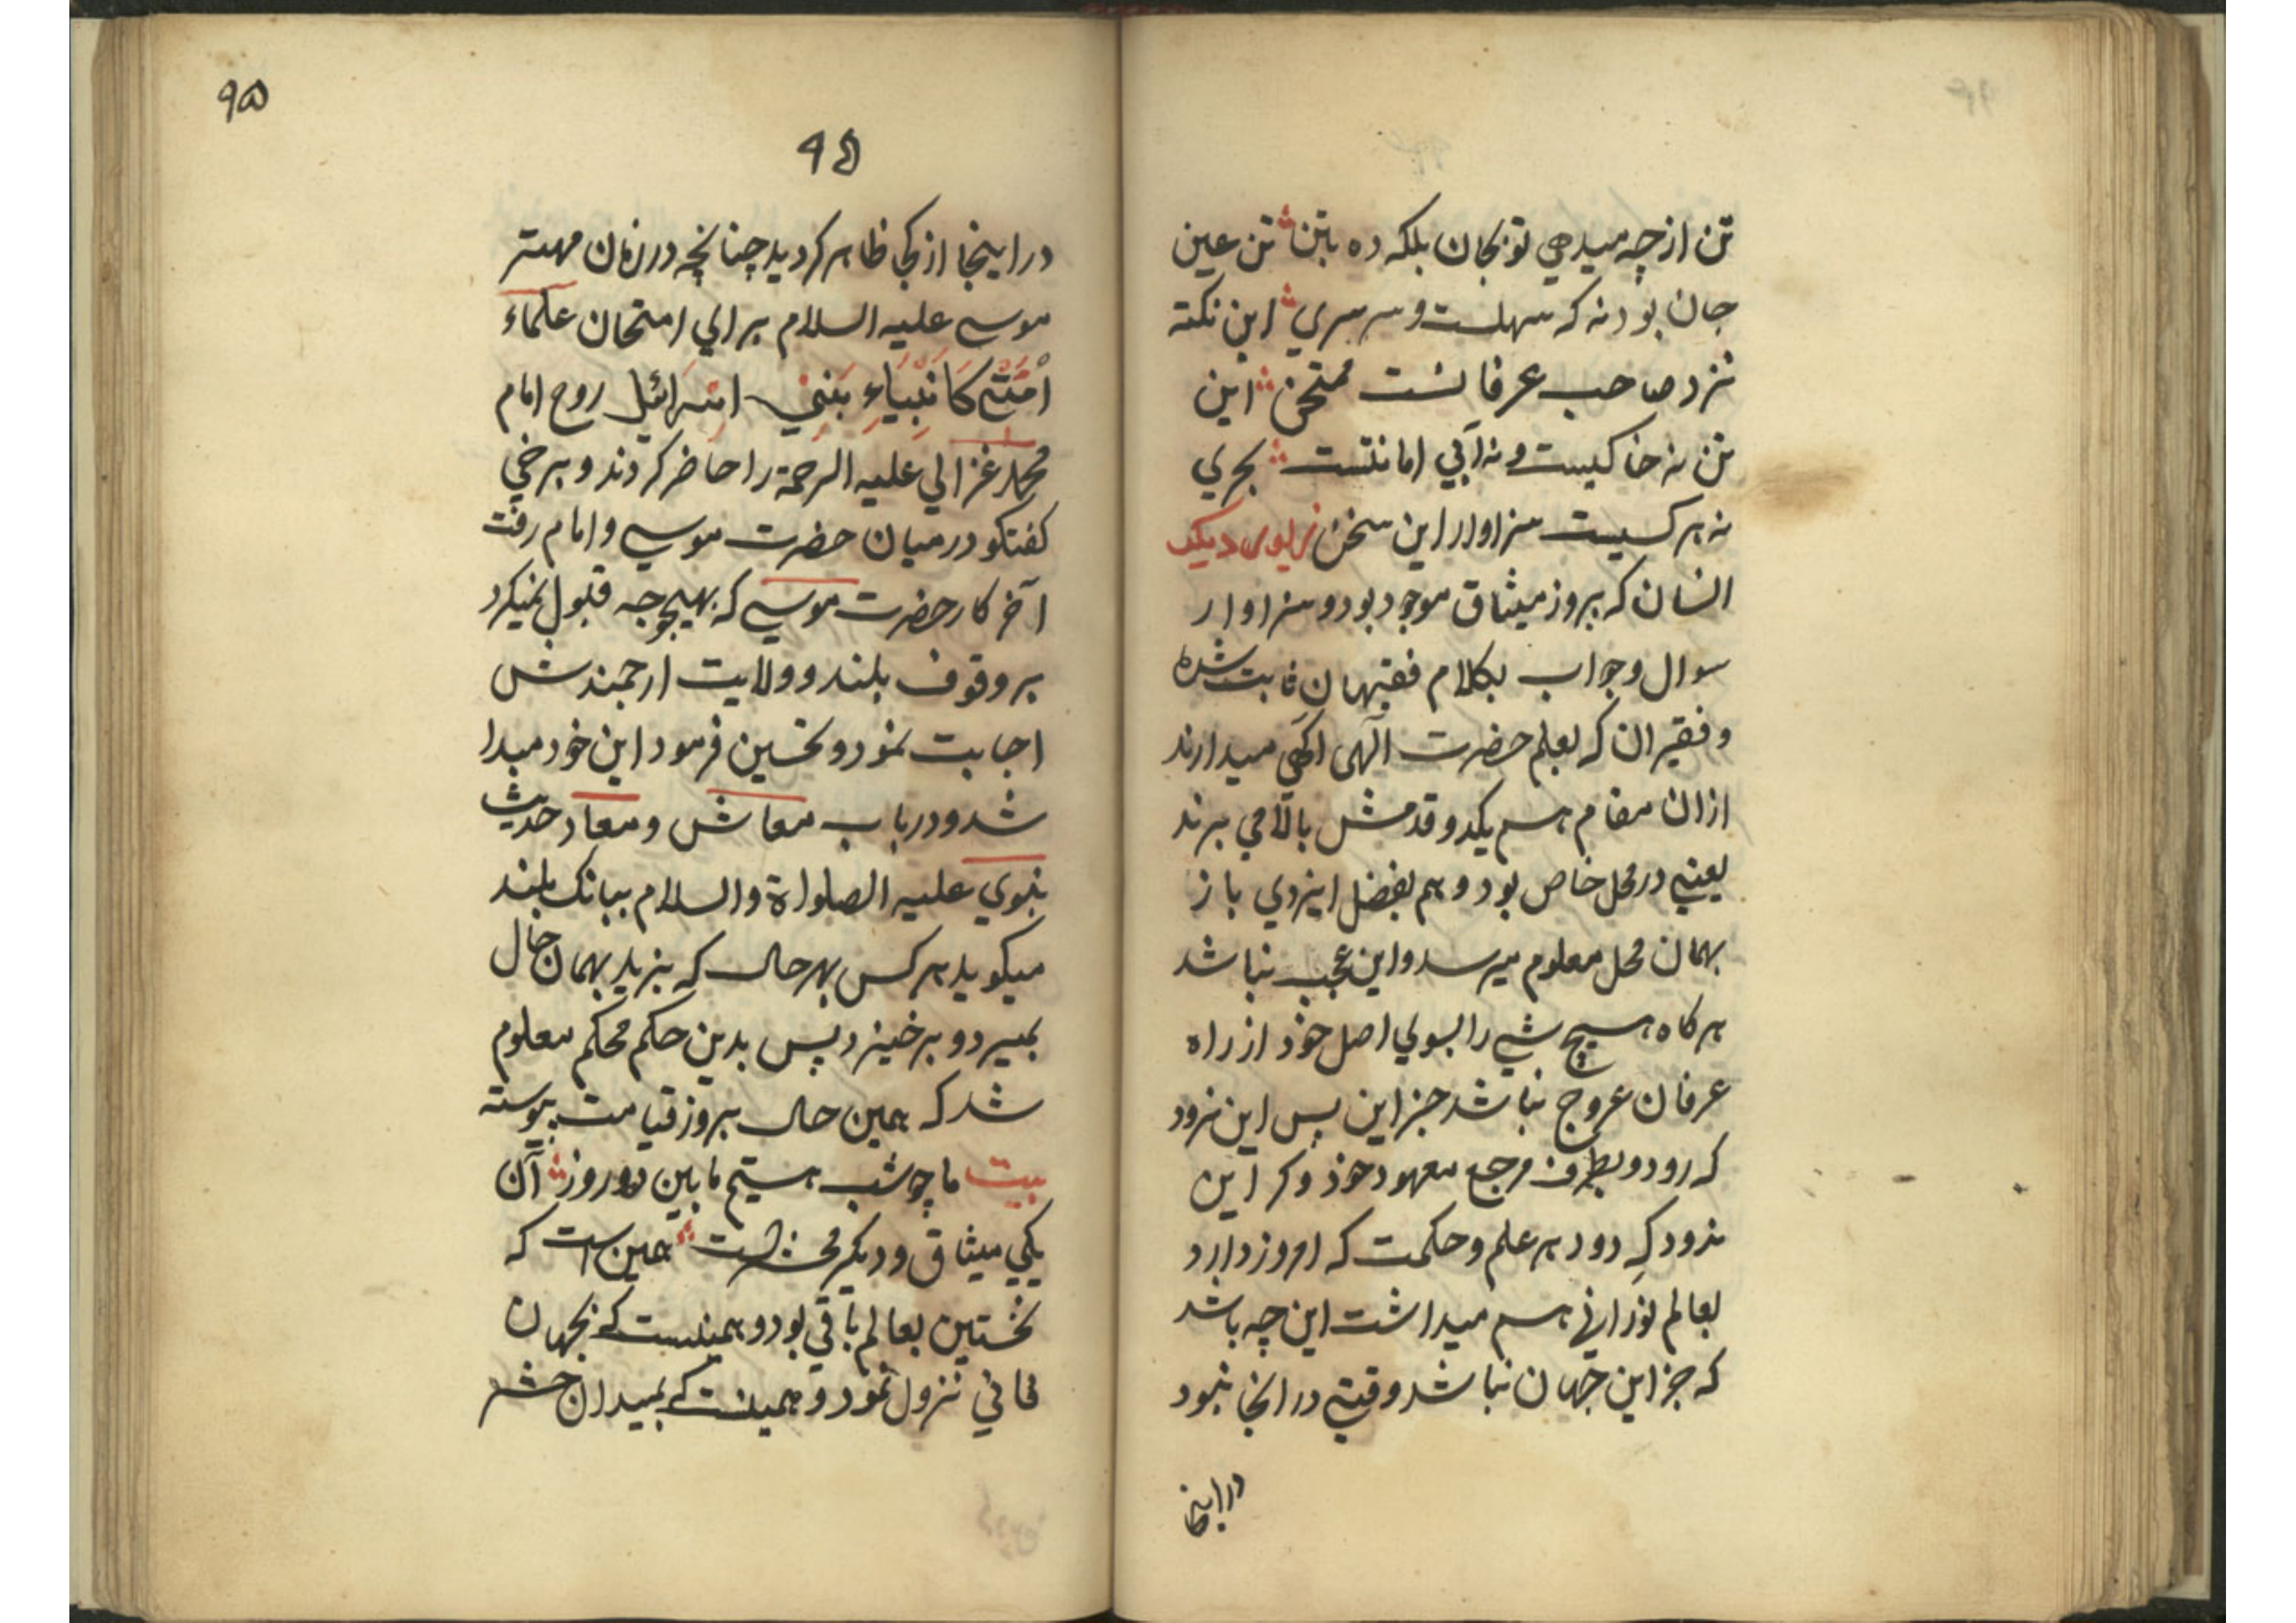 تن از چه میدهي تو بجان بلکه ده بتن ؞ تن عین
جان بود نه که سهلست و سرسري ؞ این نکته
نزد صاحب عرفانست ممتحن ؞ این
تن نه خاکیست و نه آبي امانتست ؞ بحري
نه هر کسیست سزاوار این سخن زیوی دیکر
انسان که بروز میثاق موجود بود و سزاوار
سوال و جواب بکلام فقیهان ثابت شده
و فقیران که بعلم حضرت الهی اکهي میدارند
ازان مقام هم یکدو قدمش بالا می برند
یعنی در محل خاص بود و هم بفضل ایزدي باز
بهمان محل معلوم میرسد و این عجب نباشد
هرکاه هیچ شي را بسوي اصل خود از راه
عرفان عروج نباشد جز این پس این نرود
که رود و بطرف مرجع معهود خود وکر این
ندود که دود هر علم و حکمت که امروز دارد
بعالم نوراني هم میداشت این چه باشد
که جز این جهان نباشد وقتی در انجا نبود
در اینجا
۹۵
۹۵
در اینجا از کجا ظاهر کردید چنانچه در زمان مهتر
موسی علیه السلام براي امتحان علماء
اُمَّتي كَاَنْبِيَاءِ بَنِي اسرائیل روح امام
محمد غزالي علیه الرحمة را حاضر کردند و برخي
کفتکو درمیان حضرت موسی و امام رفت
آخر کار حضرت موسی که بهیچوجه قبول نمیکرد
بر وقوف بلند و ولایت ارجمندش
اجابت نمود و تحسین فرمود این خود مبدا
شد و در باب معاش و معاد حدیث
نبوي علیه الصلواة والسلام ببانک بلند
میکوید هر کس بهر حال که بزید بهمان حال
بمیرد و برخیزد پس بدین حکم محکم معلوم
شد که همین حال بروز قیامت پیوسته
بیت ما چو شب هستیم مابین دو روز ؞ آن
یکي میثاق و دیکر محشرست ؞ همین است که
نخستین بعالم باقي بود و همینست که بجهان
فاني نزول نمود و همینست که بمیدان حشر